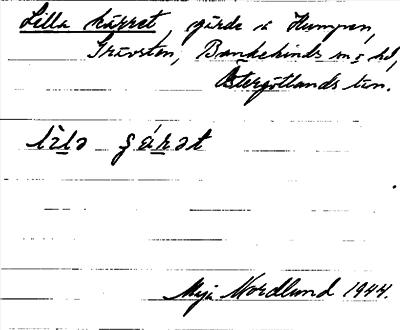 Lilla kärret, gärde u Humpen,
Grävsten, Bankekinds hd,
Östergötlands län.
lìlə ɕárət
Maja Nordlund 1944.